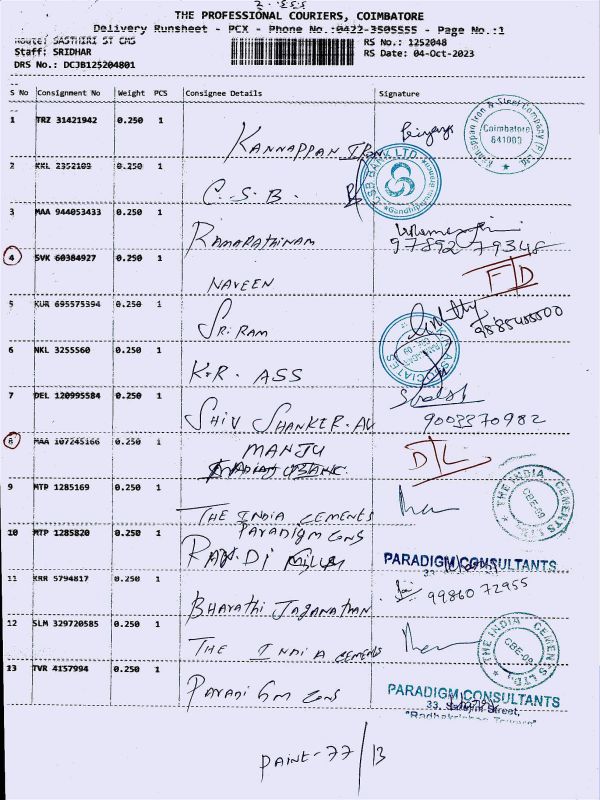 THE PROFESSIONAL COURIERS, COIMBATORE
Delivery Runsheet - PCX - Phone No.:0422-3505555 - Page No.:1
Route: SASTHIRI ST CMS
Staff: SRIDHAR
RS No.: 1252048
DRS No.: DCJB125204801
RS Date: 04-Oct-2023
S No Consignment No Weight PCS Consignee Details Signature
1 TRZ 31421942 0.250 1 KANNAPPAN IRON
Kannappan Iron & Steel Company (P) Ltd.
Coimbatore
641003
2 KKL 2352103 0.250 1 C.S.B.
CSB BANK LTD.
3 MAA 944053433 0.250 1 RAMARATHINAM
97892 79348
4 SVK 60384927 0.250 1 NAVEEN F/D
5 KUR 695575394 0.250 1 SRI RAM
6 NKL 3255560 0.250 1 K.R. ASS
ASSOCIATES
7 DEL 120995584 0.250 1 SHIV SHANKER. AU
9003370982
8 MAA 107245166 0.250 1 MANJU D/L
9 MTP 1285169 0.250 1 THE INDIA CEMENTS
THE INDIA CEMENTS LTD
CBE-09
10 MTP 1285820 0.250 1 PARADIGM CONS
PARADIGM CONSULTANTS
11 KRR 5794817 0.250 1 BHARATHI JAGANATHAN
99860 72955
12 SLM 329720585 0.250 1 THE INDIA CEMENTS
THE INDIA CEMENTS LTD
CBE-09
13 TVR 4157994 0.250 1 PARADIGM CONS
PARADIGM CONSULTANTS
33, Street,
"Radhakrishna Towers"
PAINT-77/13